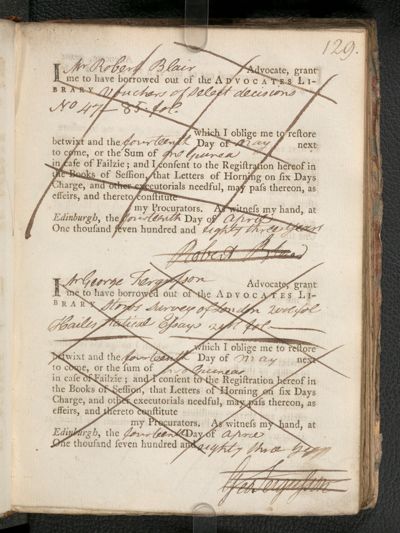 129.
I Mr Robert Blair Advocate, grant
me to have borrowed out of the ADVOCATES LI-
BRARY Vouchers of Select decisions
No 47 – 85. fol.
which I oblige me to reſtore
betwixt and the fourteenth Day of May next
to come, or the Sum of Guinea
in caſe of Failzie; and I conſent to the Regiſtration hereof in
the Books of Seſſion, that Letters of Horning on ſix Days
Charge, and other executorials needful, may paſs thereon, as
effeirs, and thereto conſtitute
my Procurators. As witneſs my hand, at
Edinburgh, the fourteenth Day of April
One thouſand ſeven hundred and eighty three years
Robert Blair
I Mr George Fergusson Advocate, grant
me to have borrowed out of the ADVOCATES LI-
BRARY Survey of London fol
Hailes Essays
which I oblige me to reſtore
betwixt and the fourteenth Day of May next
to come, or the ſum of Guineas
in caſe of Failzie; and I conſent to the Regiſtration hereof in
the Books of Seſſion, that Letters of Horning on ſix Days
Charge, and other executorials needful, may paſs thereon, as
effeirs, and thereto conſtitute
my Procurators. As witneſs my hand, at
Edinburgh, the fourteenth Day of April
One thouſand ſeven hundred and eighty three
Geo Fergusson